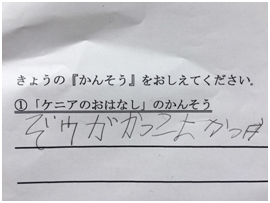 きょうの『かんそう』をおしえてください。
①「ケニアのおはなし」のかんそう
ぞウがかっこよかっナ